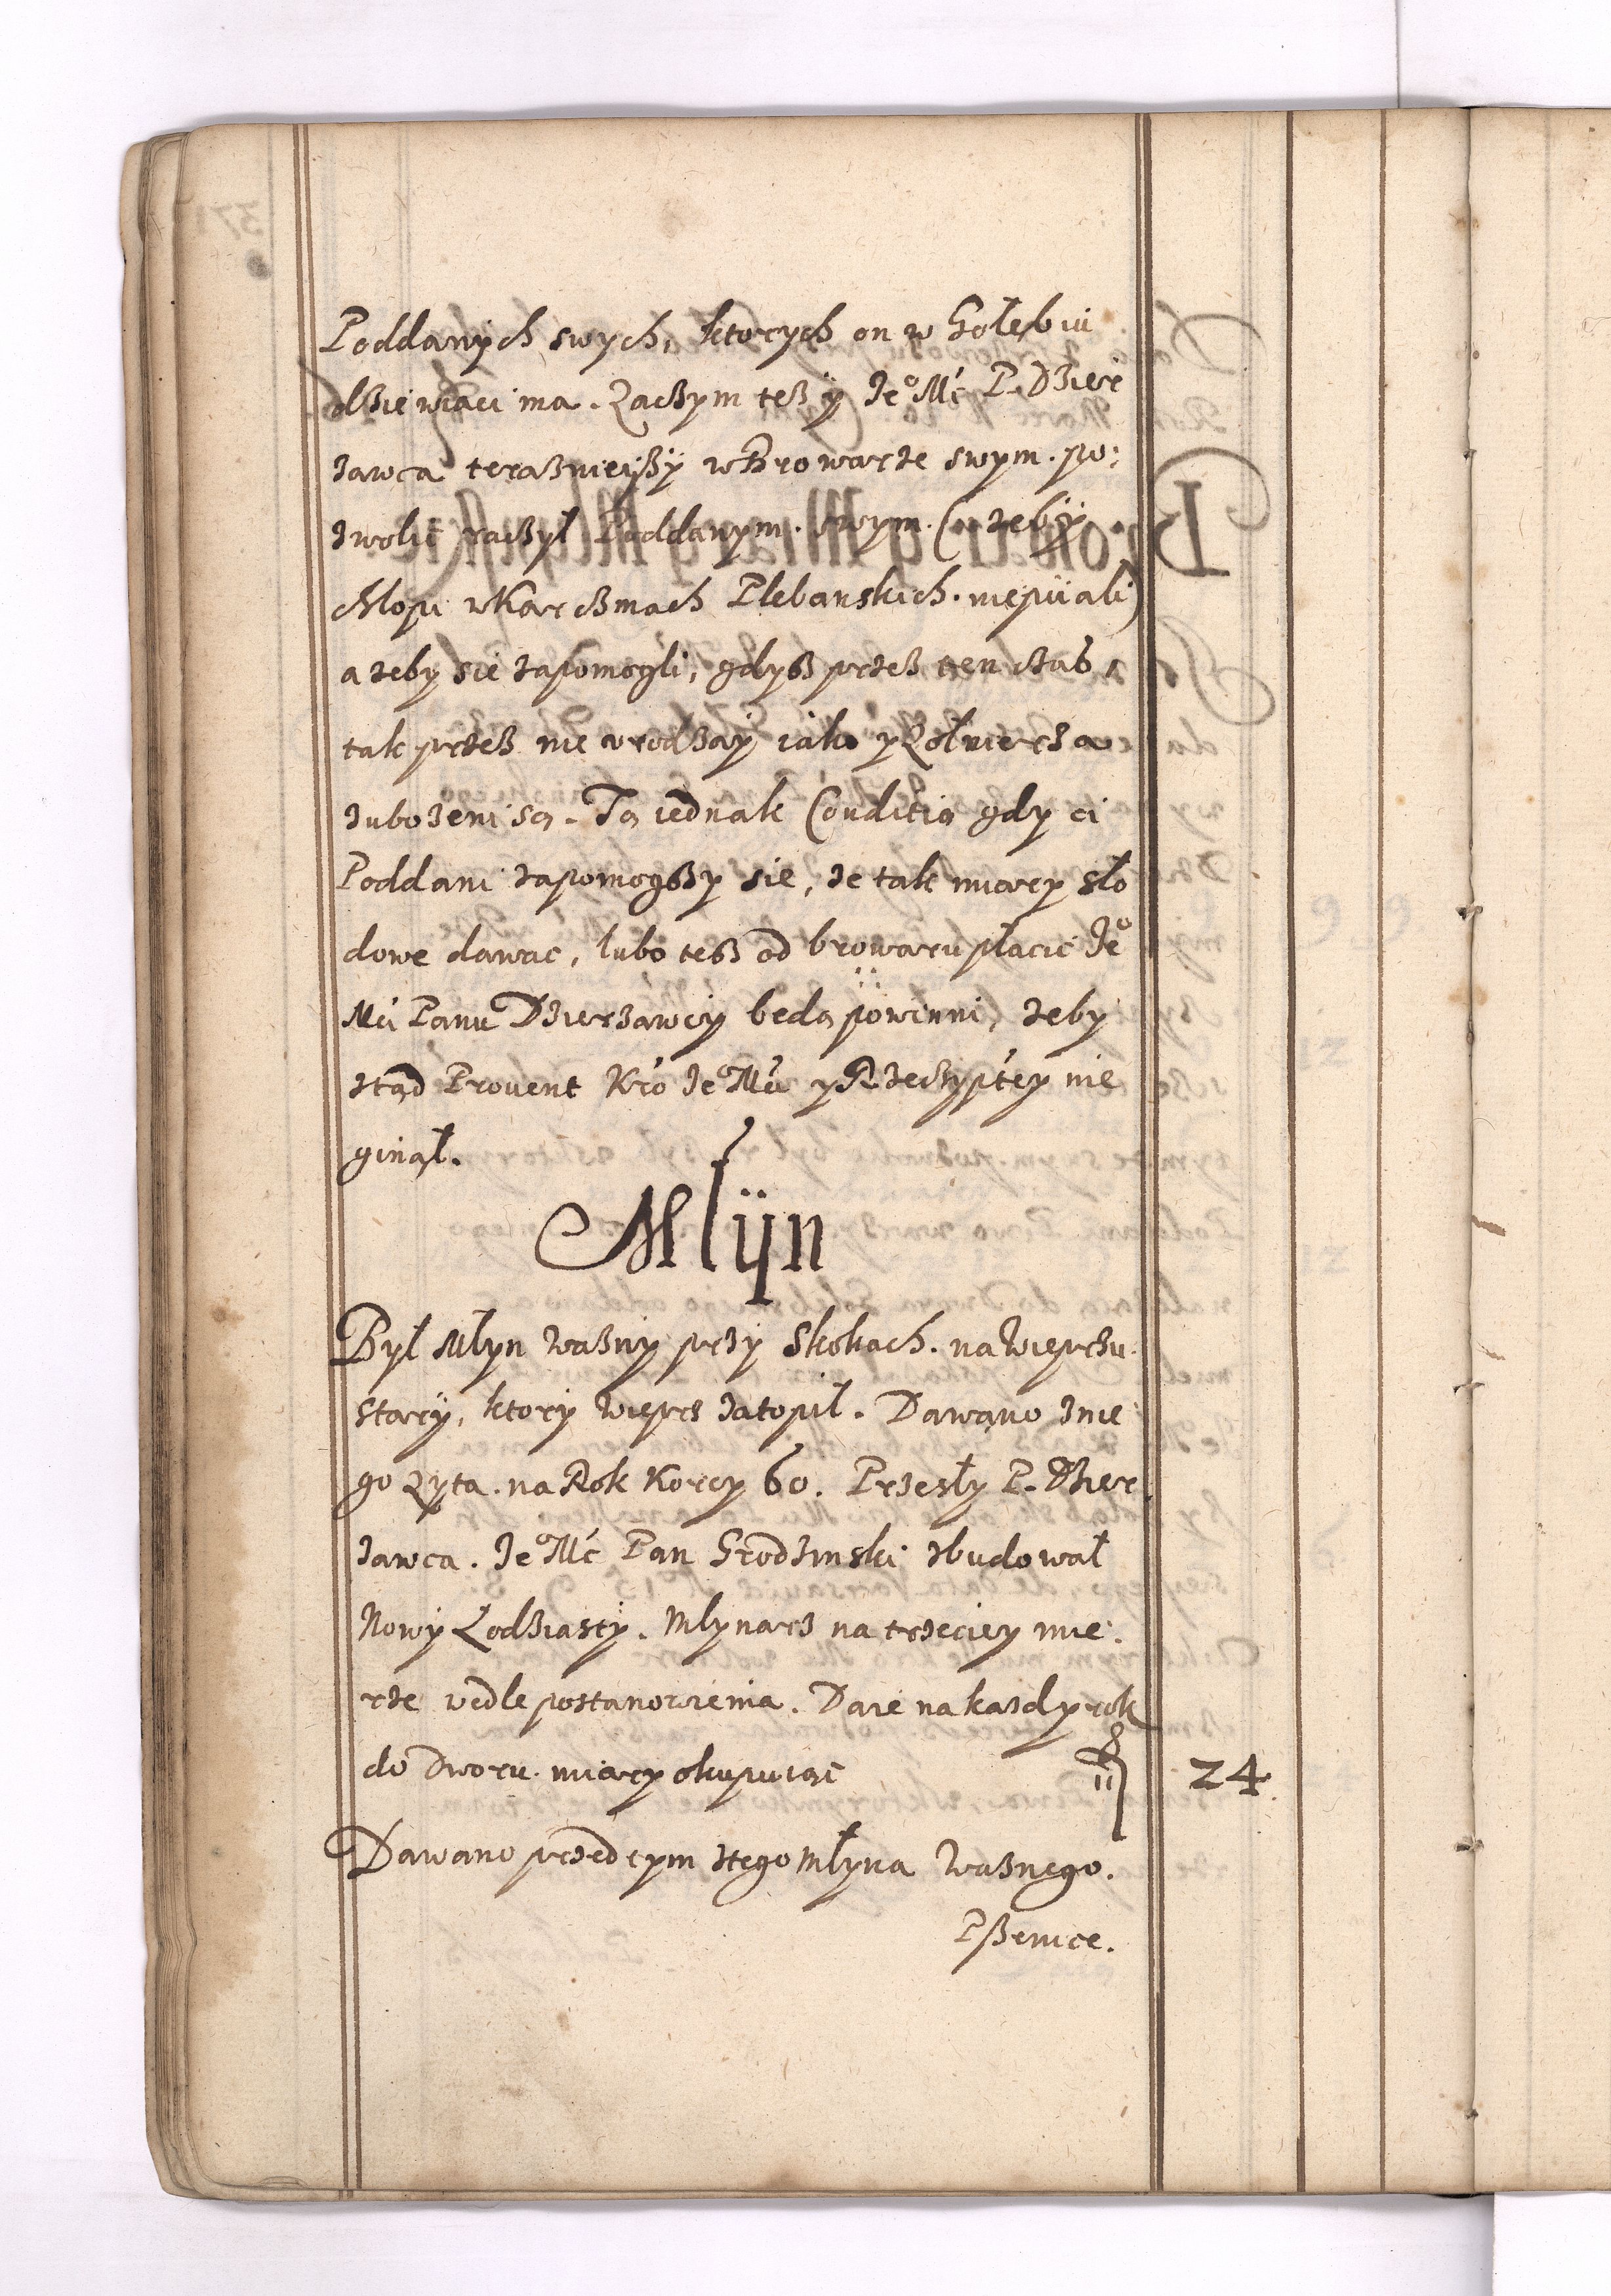 Poddanÿch swych, ktorych on w Gołębiu
dßiewiąci ma. Zacßym teß ÿ Jeº Mć P. Dzier
zawca teraßnieÿßÿ wBrowarze swym. po:
zwolić racßył Poddanym. swym. (zebÿ
chłopi wKarcßmach Plebanskich. niepiiali)
a zeby się zapomogli, gdyß przeß ten cżas,
tak przeß nie vrodzaÿ iako y Żołnierza
zubozeni są. Tą iednak Conditią gdy ci
Poddani zapomogßy się, ze tak miary sło
dowe dawac, lubo teß od browaru płacic Jeº
Mći Panu Dzierzawcÿ będą powinni, zeby
ztąd Prouent Kró Jeº Mći y Rzecżyptéy nie
ginął.
Młÿn
Był Młyn ważnÿ przÿ Skokach. na Wieprzu.
starÿ, ktory Wieprz zatopił. Dawano znie
go Zyta. na Rok Korcy 60. Przesły P. Dzier
zawca. Jeº Mć Pan Grodzinski zbudował
Nowÿ Łodziastÿ. Młynarz na trzeciey mie:
rze wedle postanowienia. Daie na kazdy rok
do Dworu. miary okupuiąć fl 24
Dawano przedtym ztego młyna Waznego.
Pßenice.